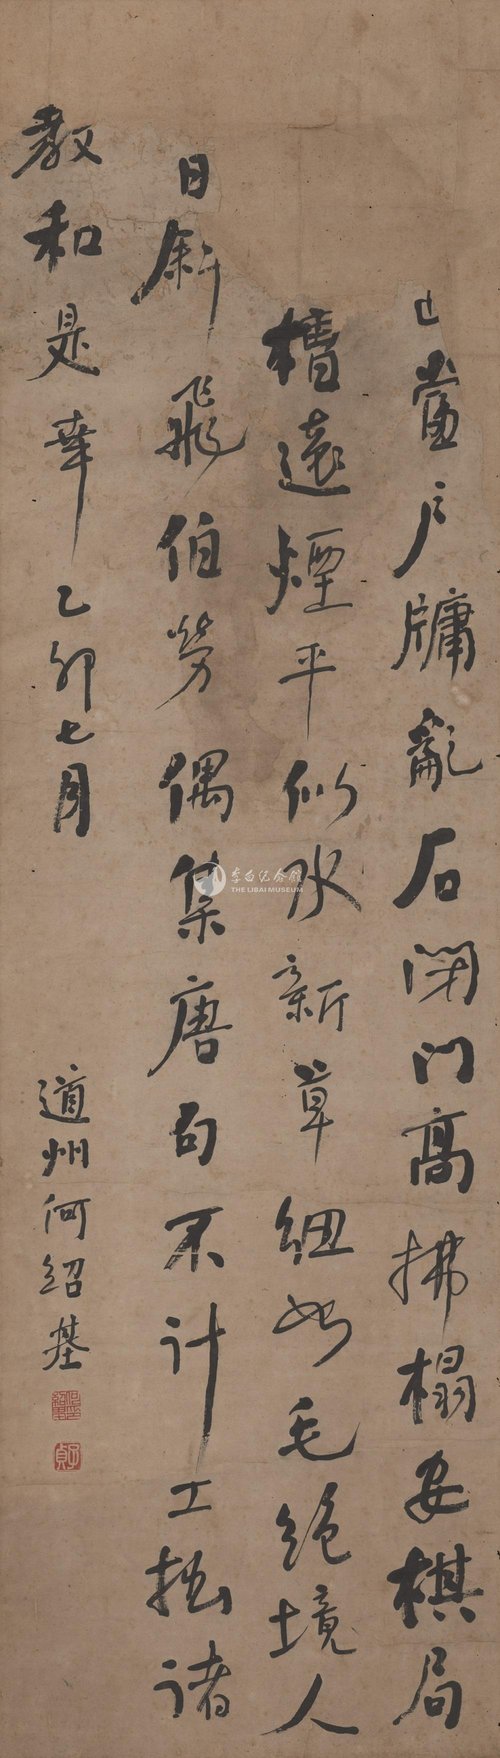 當户牖亂石閉門高拂榻安棋局
槽遠煙平似水新草細如毛絕境人
日斜飛伯勞偶集唐句不計工拙諸
教和是幸乙卯七月
道州何紹基
子貞
李白纪念館
THE LIBAI MUSEUM